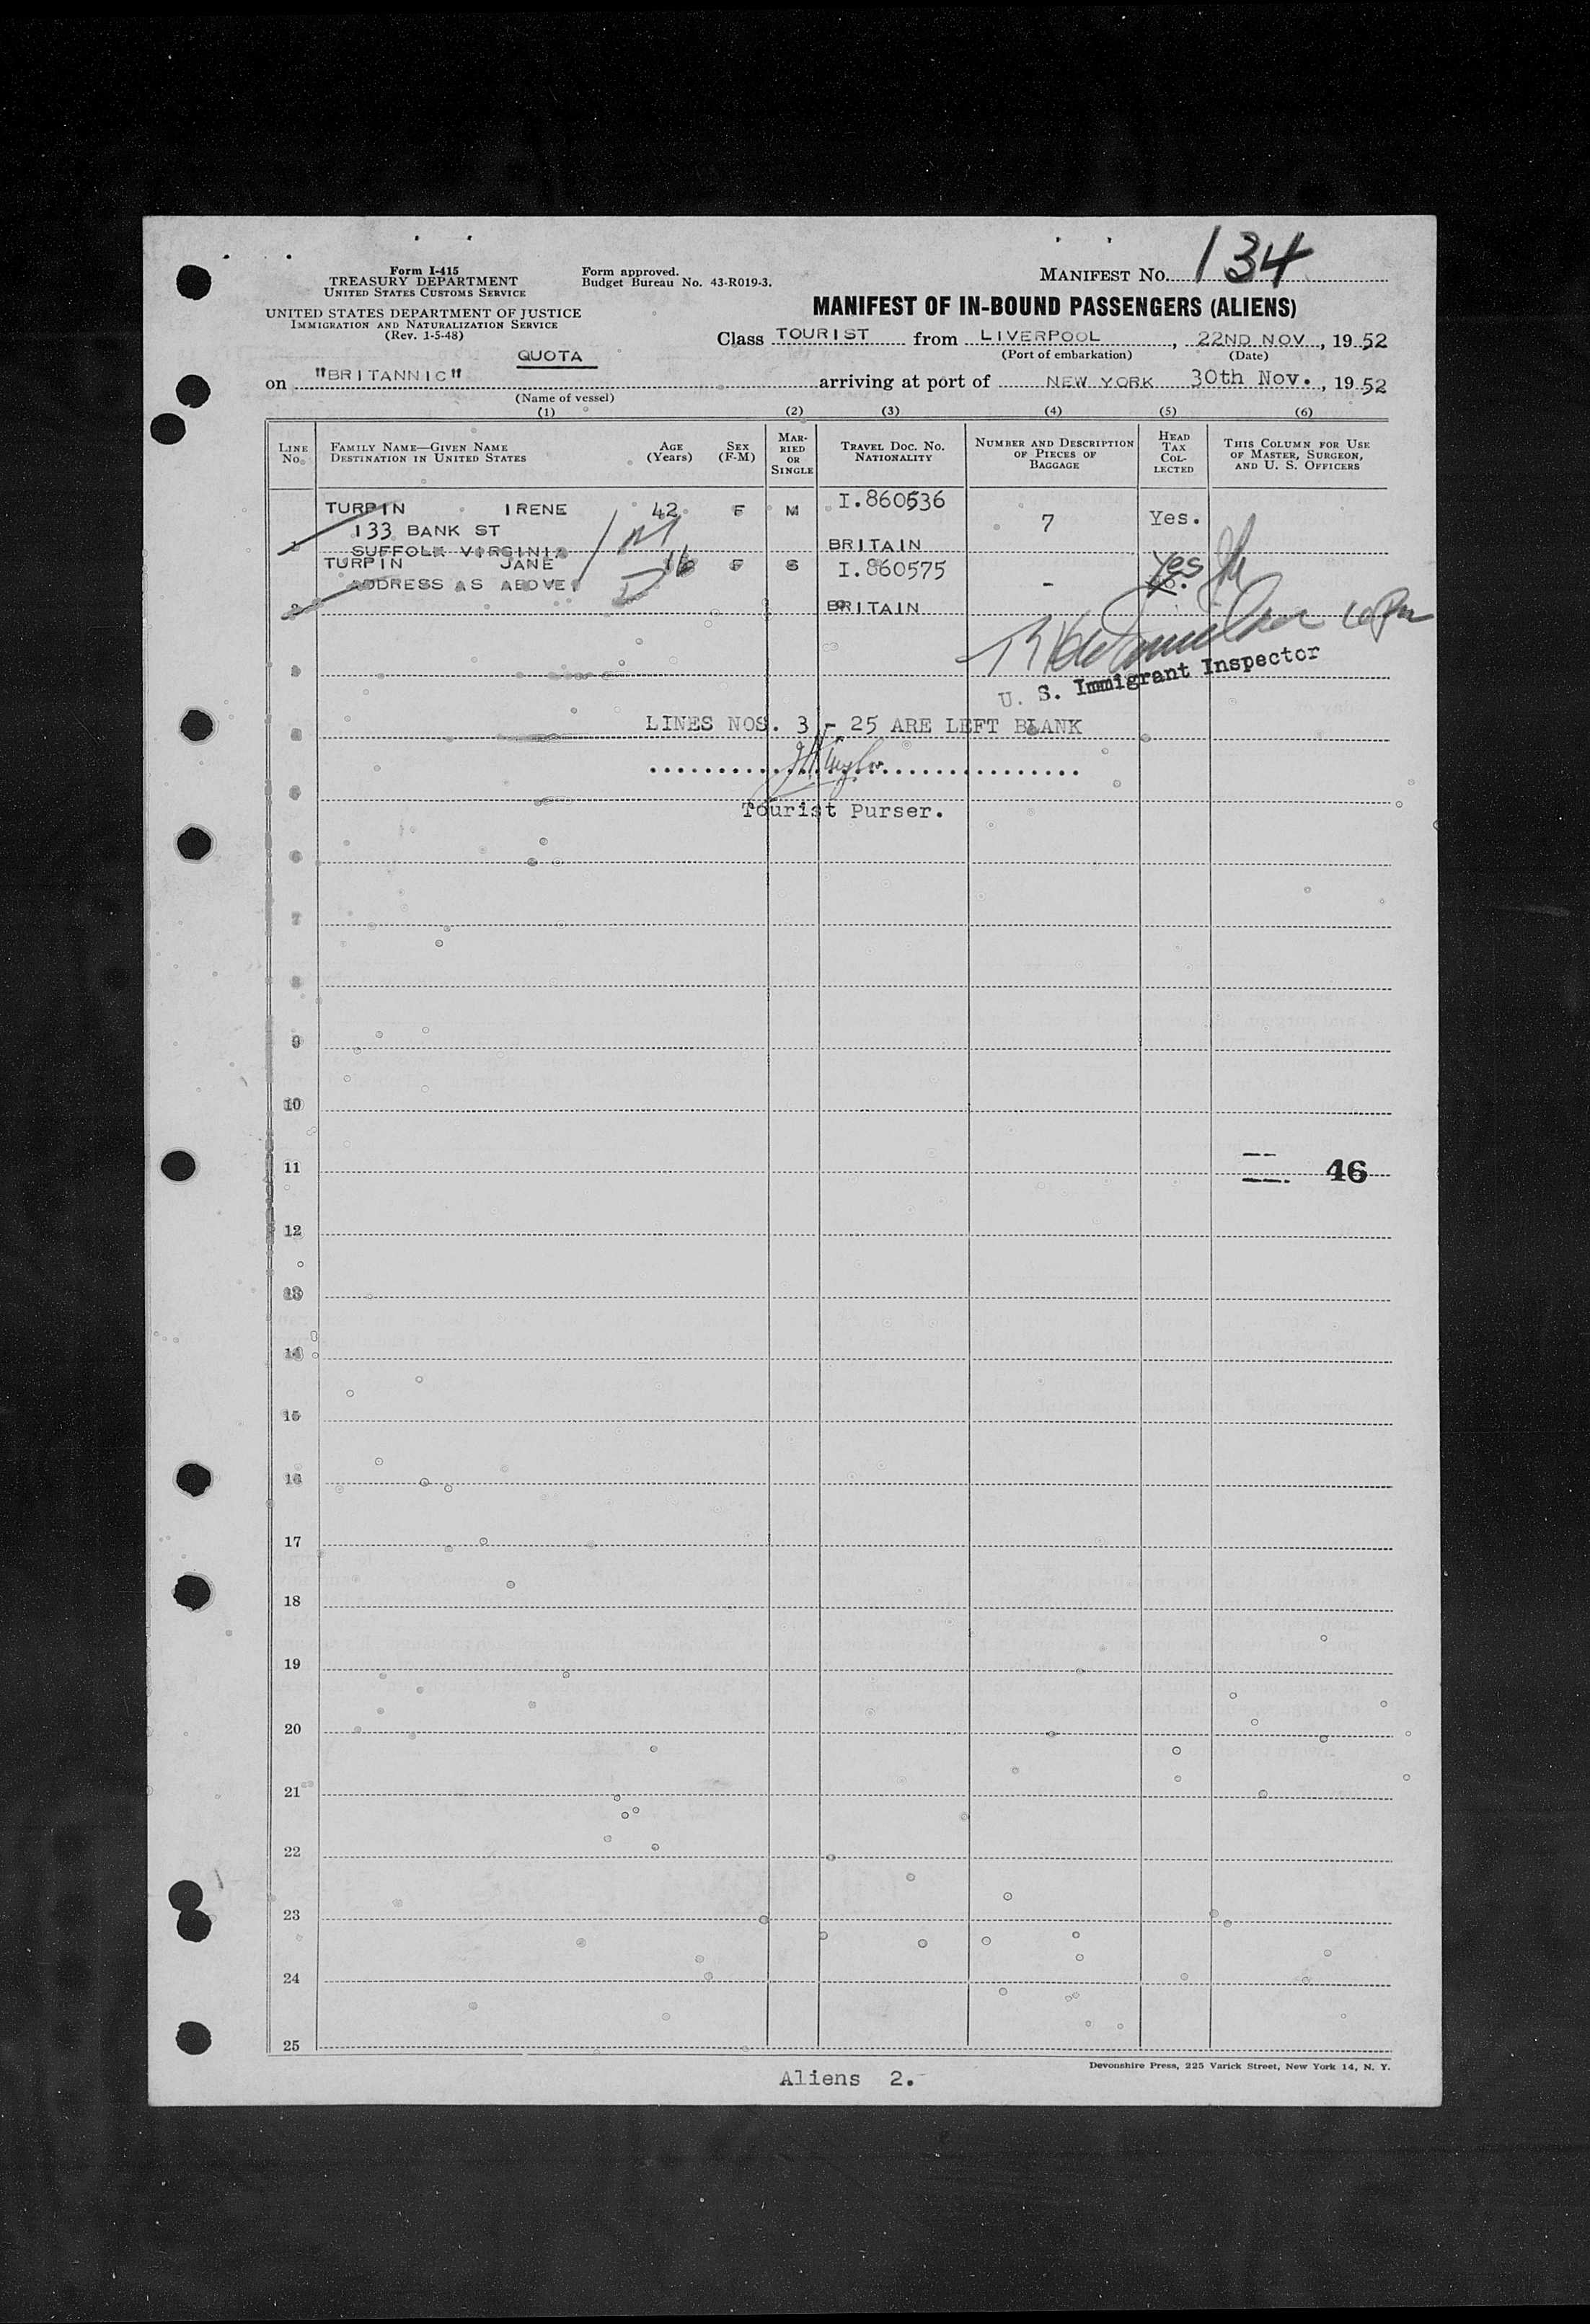 Form I-415
TREASURY DEPARTMENT
UNITED STATES CUSTOMS SERVICE
UNITED STATES DEPARTMENT OF JUSTICE
IMMIGRATION AND NATURALIZATION SERVICE
(Rev. 1-5-48)
Form approved.
Budget Bureau No. 43-R019-3.
MANIFEST NO. 134
MANIFEST OF IN-BOUND PASSENGERS (ALIENS)
Class TOURIST from LIVERPOOL, 22ND NOV, 1952
(Port of embarkation) (Date)
QUOTA
on "BRITANNIC" arriving at port of NEW YORK 30th Nov., 1952
(Name of vessel)
(1) (2) (3) (4) (5) (6)
LINE NO. FAMILY NAME—GIVEN NAME DESTINATION IN UNITED STATES AGE (Years) SEX (F-M) MARRIED OR SINGLE TRAVEL DOC. NO. NATIONALITY NUMBER AND DESCRIPTION OF PIECES OF BAGGAGE HEAD TAX COLLECTED THIS COLUMN FOR USE OF MASTER, SURGEON, AND U. S. OFFICERS
TURPIN IRENE 42 F M I.860536 7 Yes.
133 BANK ST
1 SUFFOLK VIRGINIA BRITAIN
TURPIN JANE 16 F S I.860575 - Yes
ADDRESS AS ABOVE
2 BRITAIN
3
U. S. Immigrant Inspector
LINES NOS. 3 - 25 ARE LEFT BLANK
4
5
Tourist Purser.
6
7
8
9
10
11 46
12
13
14
15
16
17
18
19
20
21
22
23
24
25
Devonshire Press, 225 Varick Street, New York 14, N. Y.
Aliens 2.